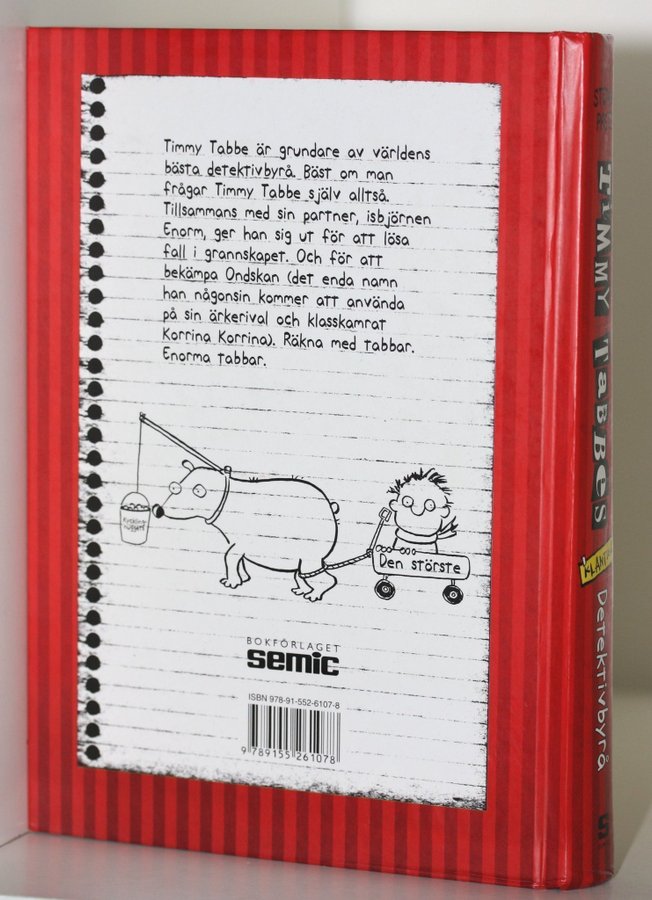 Timmy Tabbe är grundare av världens
bästa detektivbyrå. Bäst om man
frågar Timmy Tabbe själv alltså.
Tillsammans med sin partner, isbjörnen
Enorm, ger han sig ut för att lösa
fall i grannskapet. Och för att
bekämpa Ondskan (det enda namn
han någonsin kommer att använda
på sin ärkerival och klasskamrat
Korrina Korrina). Räkna med tabbar.
Enorma tabbar.
Den störste
BOKFÖRLAGET
semic
ISBN 978-91-552-6107-8
9 789155 261078
TiMMY TaBBes
Detektivbyrå
S